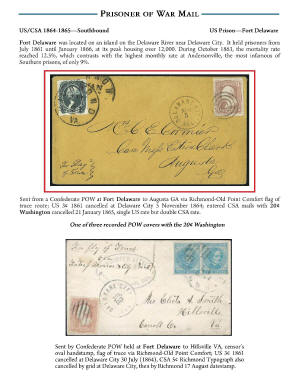 PRISONER OF WAR MAIL
US/CSA 1864-1865—Southbound US Prison—Fort Delaware
Fort Delaware was located on an island on the Delaware River near Delaware City. It held prisoners from
July 1861 until January 1866, at its peak housing over 12,000. During October 1863, the mortality rate
reached 12.5%, which contrasts with the highest monthly rate at Andersonville, the most infamous of
Southern prisons, of only 9%.
VA.
DELAWARE CITY
Mrs C. E. Cormier
Augusta
Ga
Sent from a Confederate POW at Fort Delaware to Augusta GA via Richmond-Old Point Comfort flag of
truce route; US 3¢ 1861 cancelled at Delaware City 5 November 1864; entered CSA mails with 20¢
Washington cancelled 21 January 1865, single US rate but double CSA rate.
One of three recorded POW covers with the 20¢ Washington
DELAWARE CITY
Hillsville
Carroll Co. Va
Sent by Confederate POW held at Fort Delaware to Hillsville VA, censor's
oval handstamp, flag of truce via Richmond-Old Point Comfort; US 3¢ 1861
cancelled at Delaware City 30 July (1864), CSA 5¢ Richmond Typograph also
cancelled by grid at Delaware City, then by Richmond 17 August datestamp.